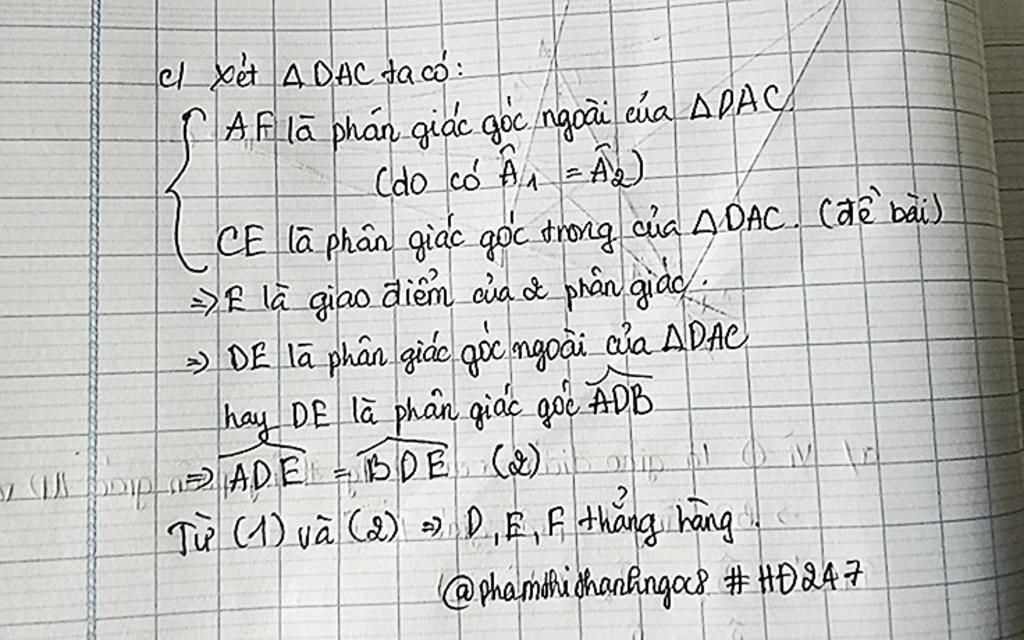 c/ Xét ΔDAC ta có:
AF là phân giác góc ngoài của ΔDAC
(do có Â1 = Â2)
CE là phân giác góc trong của ΔDAC. (đề bài)
=> E là giao điểm của 2 phân giác.
=> DE là phân giác góc ngoài của ΔDAC
hay DE là phân giác góc ADB
=> ADE = BDE (2)
Từ (1) và (2) => D, E, F thẳng hàng.
@phamthithanhngoc8 #HĐ247